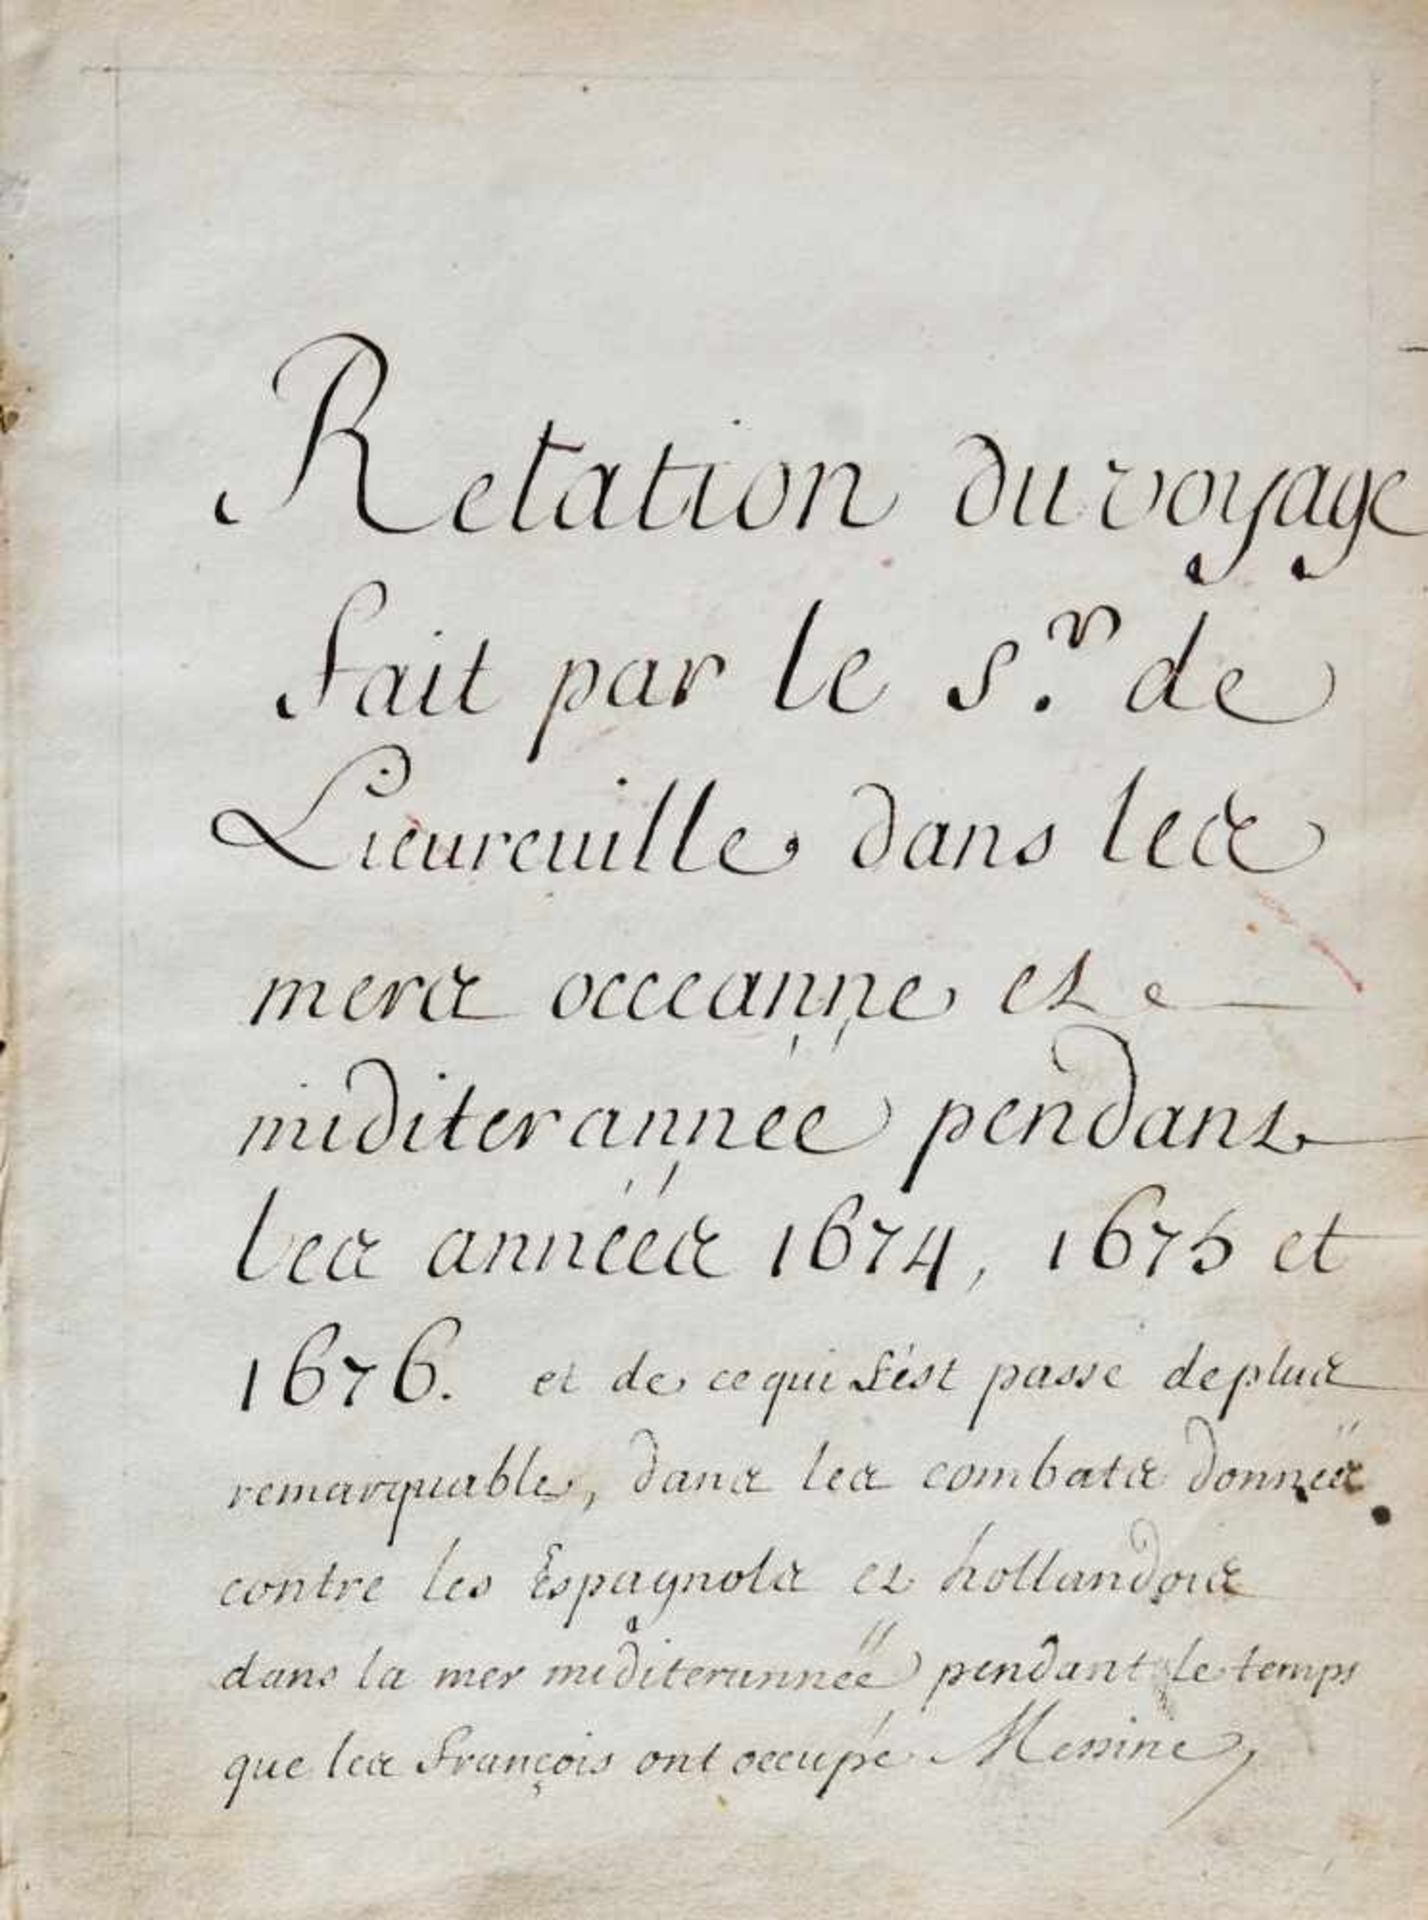 Relation du voyage
fait par le S.r de
Lieureuille dans les
mers occeanne et
miditerannee pendant
les années 1674, 1675 et
1676. et de ce qui s'est passé de plus
remarquable, dans les combats donnéé
contre les Espagnols et hollandois
dans la mer miditerannéé pendant le temps
que les françois ont occupé Messine,